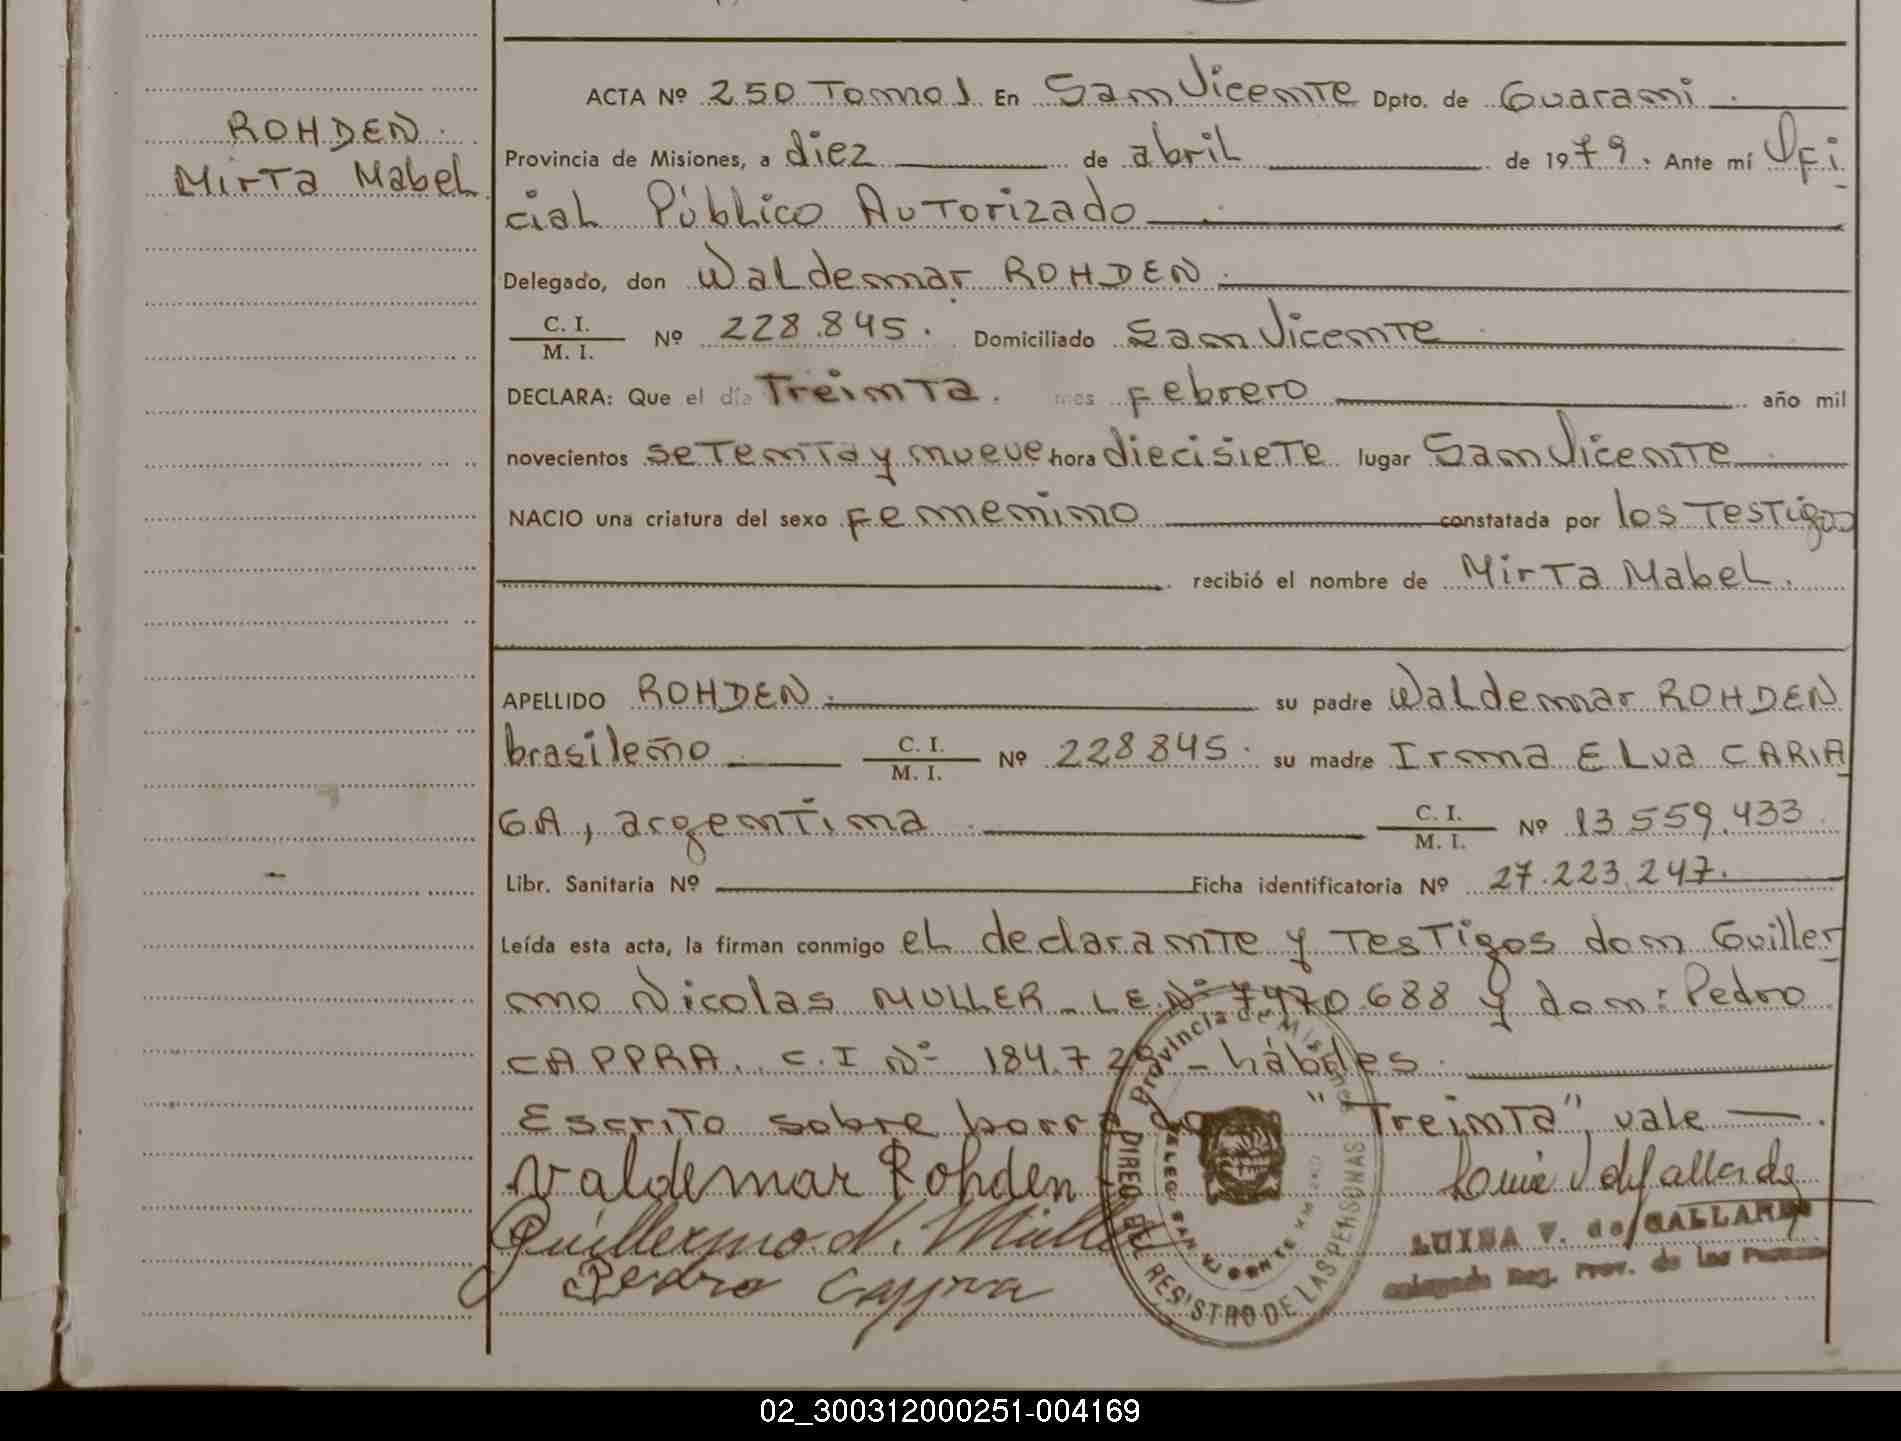 ROHDEN.
Mirta Mabel.
ACTA Nº 250 Tomo 1 En San Vicente Dpto. de Guarani.
Provincia de Misiones, a diez de abril de 1979. Ante mí Ofi
cial Público Autorizado
Delegado, don Waldemar ROHDEN.
C. I.
M. I.
Nº 228.845. Domiciliado San Vicente
DECLARA: Que el día Treinta. mes Febrero año mil
novecientos setenta y nueve hora diecisiete lugar San Vicente
NACIO una criatura del sexo femenino constatada por los Testigos
recibió el nombre de Mirta Mabel.
APELLIDO ROHDEN. su padre Waldemar ROHDEN
brasileño C. I.
M. I.
Nº 228845. su madre Irma ELva CARIA
GA, argentina C. I.
M. I.
Nº 13.559.433
Libr. Sanitaria Nº Ficha identificatoria Nº 27.223.247.
Leída esta acta, la firman conmigo el declarante y Testigos don Guiller
mo Nicolas MULLER - L.E.Nº 7470.688 y don: Pedro
CAPPRA. C.I Nº 184.7 - hábiles.
Escrito sobre borrado "Treinta", vale
Waldemar Rohden
Guillermo N. Müller
Pedro Cappra
LUISA V. de GALLARDO
Reg. Prov. de las Personas
Provincia de Misiones
DIREC. DEL REGISTRO DE LAS PERSONAS
02_300312000251-004169